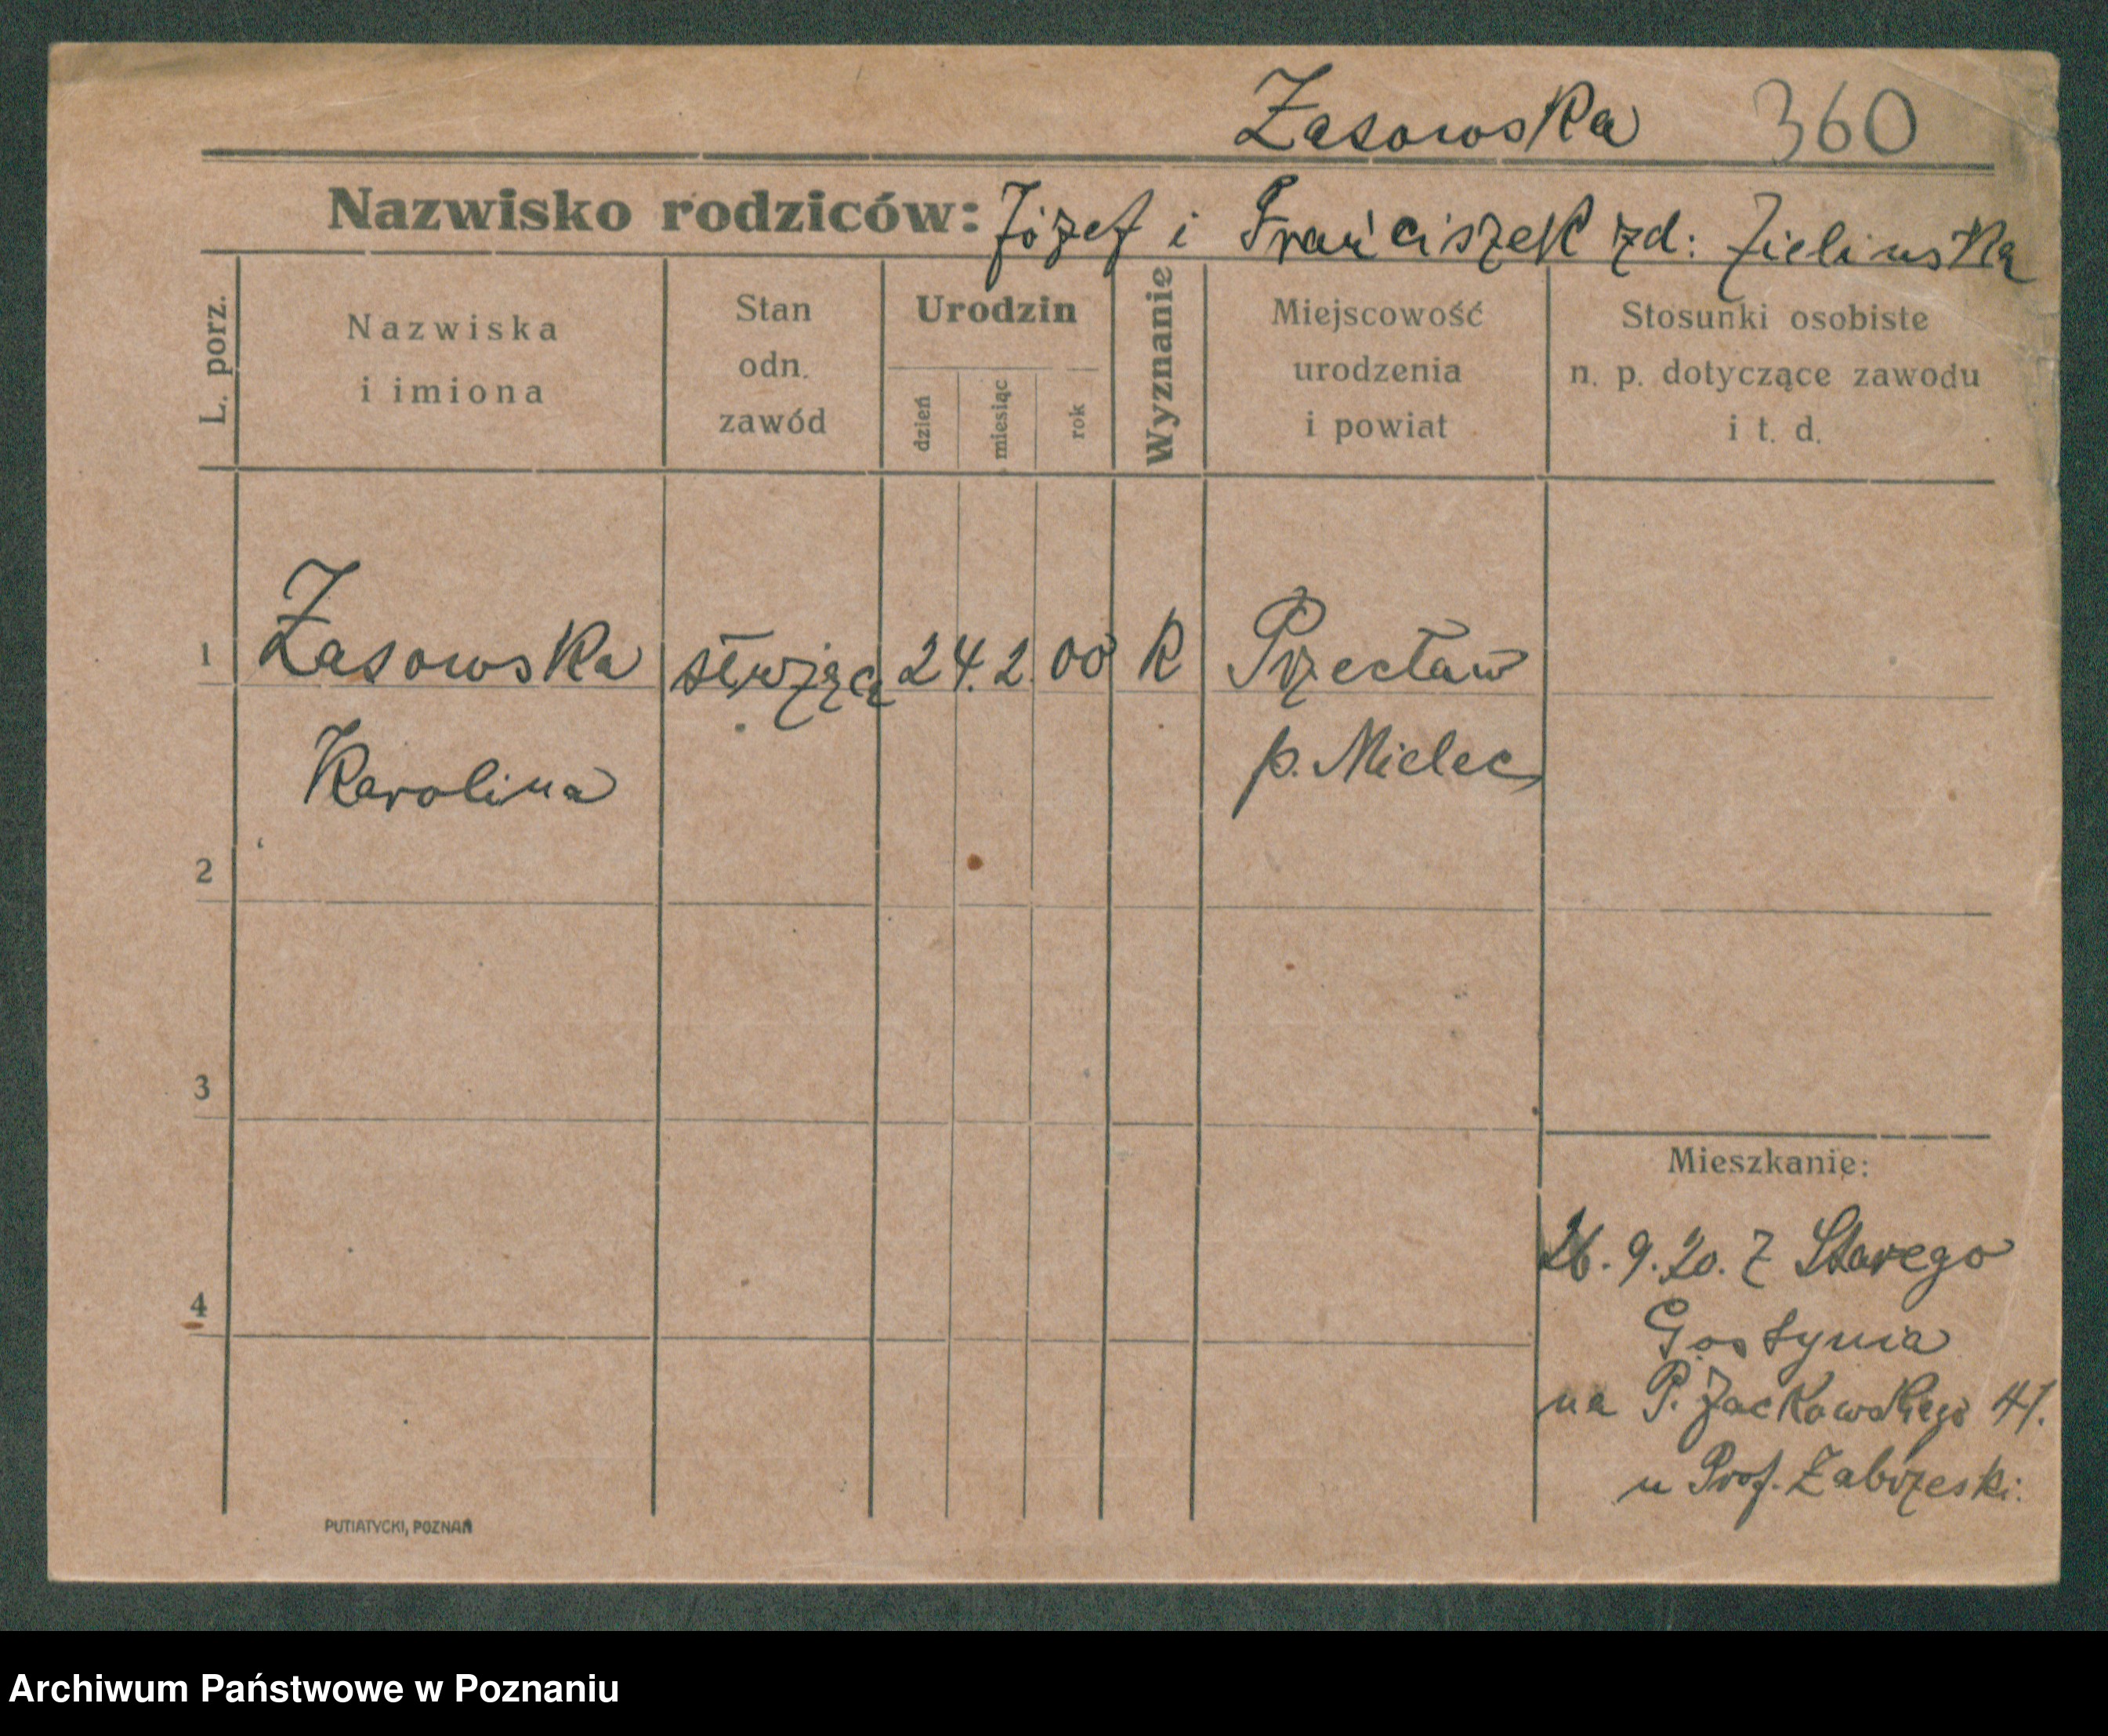 Zasowska 360
Nazwisko rodziców: Józef i Franciszek zd: Zielinska
L. porz.
Nazwiska
i imiona
Stan
odn.
zawód
Urodzin
dzień
miesiąc
rok
Wyznanie
Miejscowość
urodzenia
i powiat
Stosunki osobiste
n. p. dotyczące zawodu
i t. d.
1 Zasowska służąca 24. 2. 00 R Przecław
Karolina p. Mielec
2
3
4
Mieszkanie:
26. 9. 20. Z Starego
Gostynia
na P. Jackowskiego 41.
u Prof. Zabrzeski.
PUTIATYCKI, POZNAŃ
Archiwum Państwowe w Poznaniu